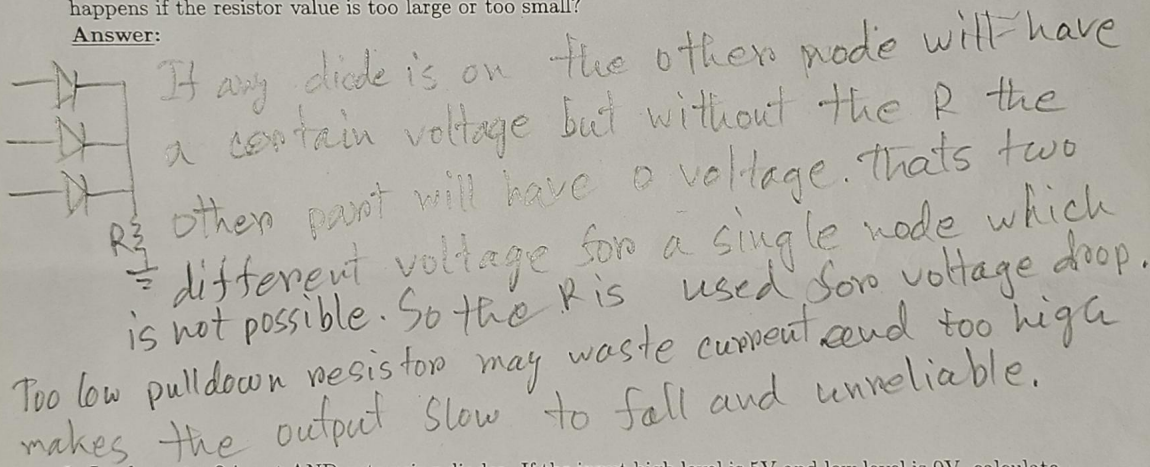 happens if the resistor value is too large or too small?
Answer:
If any diode is on the other node will have
a certain voltage but without the R the
other part will have 0 voltage. thats two
R
different voltage for a single node which
is not possible. So the R is used for voltage drop.
Too low pulldown resistor may waste current and too high
makes the output slow to fall and unreliable.